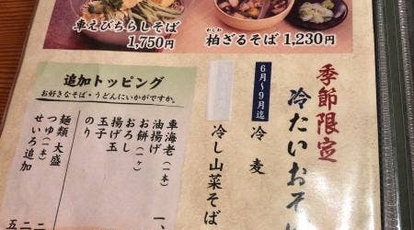 車えびちらしそば
1,750円
柏ざるそば 1,230円
かしわ
季節限定
冷たいおそ
6月~9月迄
冷麦
冷し山菜そば
追加トッピング
お好きなそば・うどんにいかがですか。
車海老(一本) 一、
油揚げ
お餅(一ヶ)
おろし
揚げ玉
玉子
のり
麺類 大盛 二
つゆ(一本) 二
せいろ追加 五